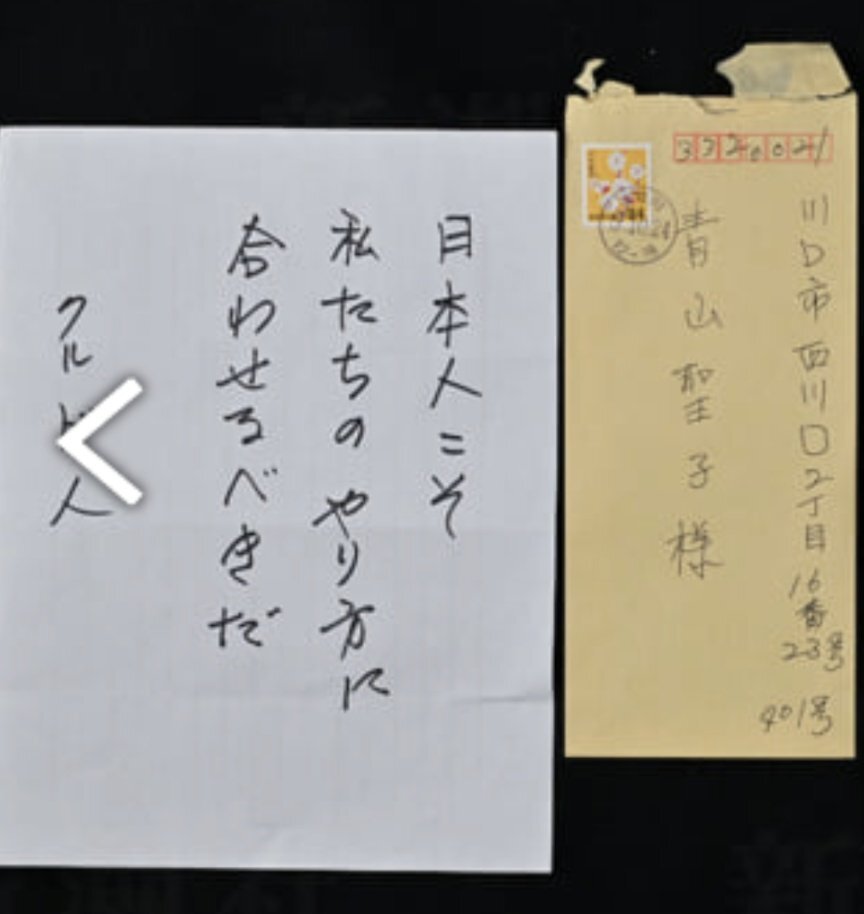 日本人こそ
私たちの やり方に
合わせるべきだ
クルド人
3320021
川口市西川口2丁目16番23号
401号
青山聖子様